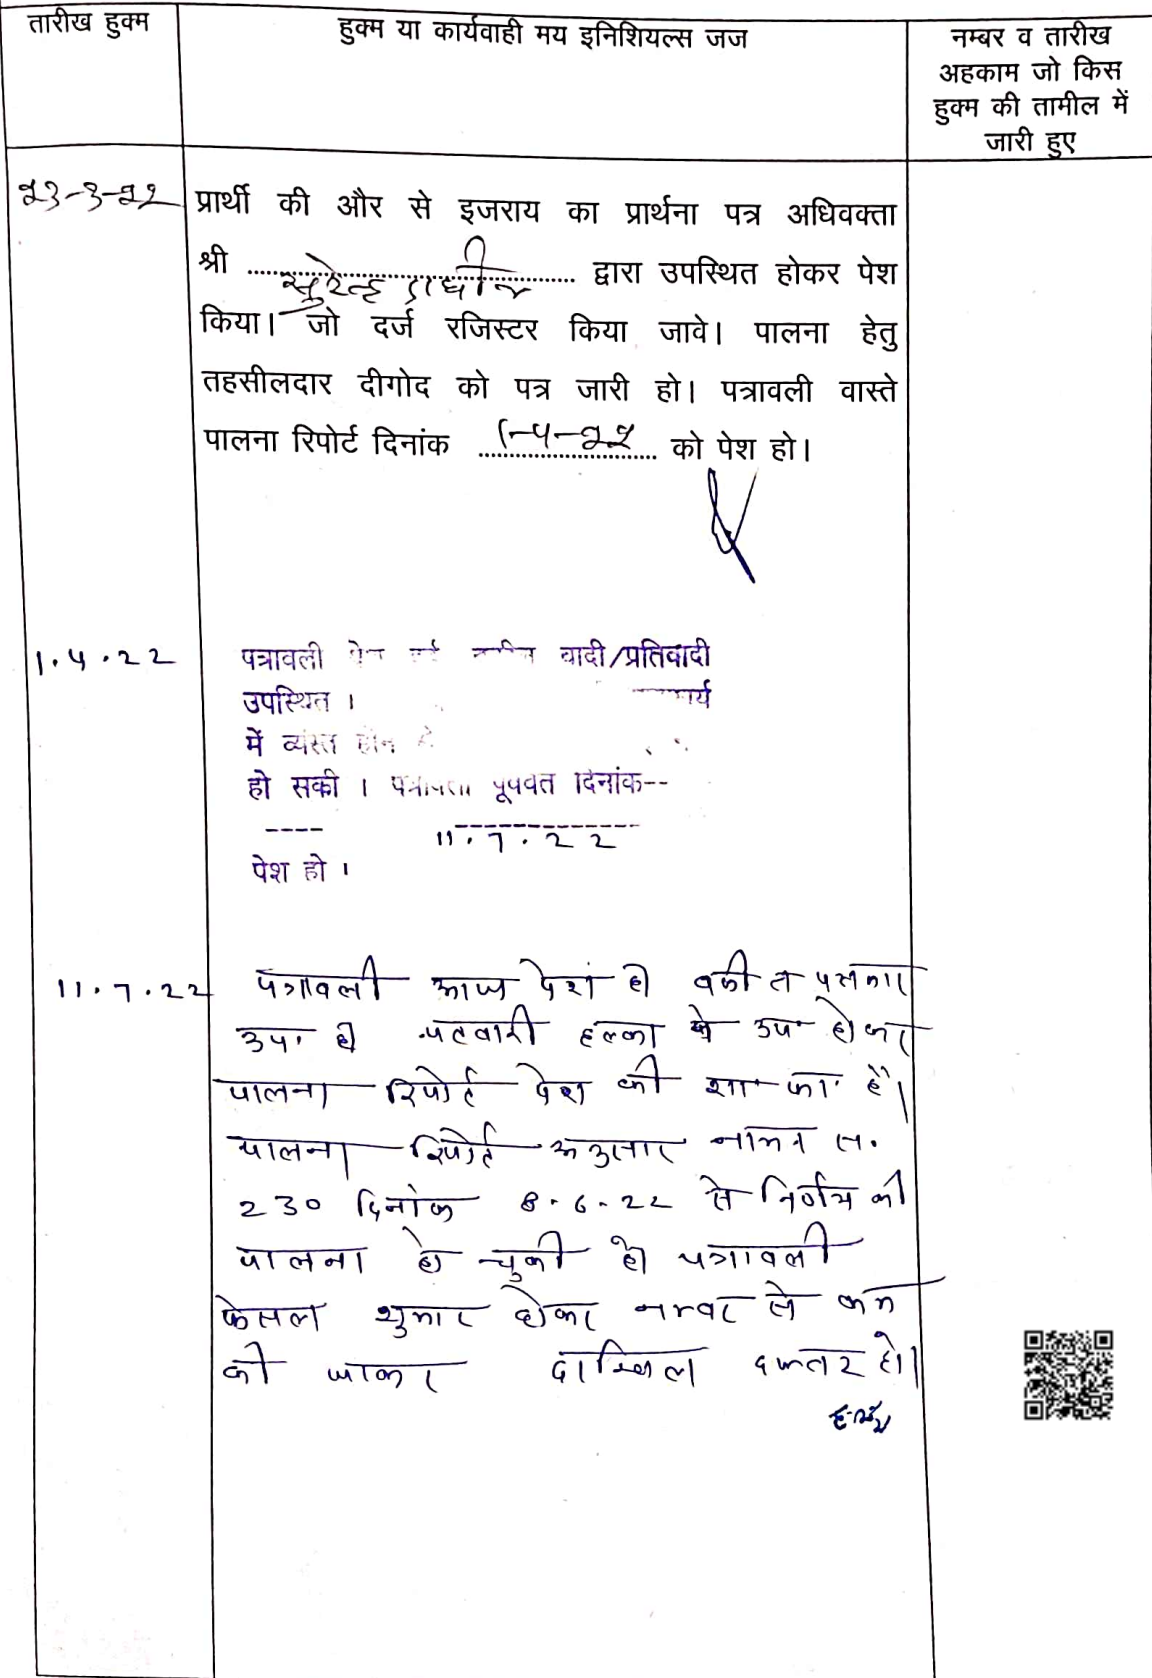 तारीख हुक्म
हुक्म या कार्यवाही मय इनिशियल्स जज
नम्बर व तारीख
अहकाम जो किस
हुक्म की तामील में
जारी हुए
२३-३-२२
प्रार्थी की और से इजराय का प्रार्थना पत्र अधिवक्ता
श्री सुरेन्द्र द्वारा उपस्थित होकर पेश
किया। जो दर्ज रजिस्टर किया जावे। पालना हेतु
तहसीलदार दीगोद को पत्र जारी हो। पत्रावली वास्ते
पालना रिपोर्ट दिनांक १-४-२२ को पेश हो।
1.4.22
पत्रावली वादी/प्रतिवादी
उपस्थित ।
में व्यस्त होने
हो सकी । पत्रावली पूर्ववत दिनांक--
----
11.7.22
पेश हो ।
11.7.22
पत्रावली आज पेश हो वकील
उप. हो पटवारी हल्का ने उप होकर
पालना रिपोर्ट पेश की है।
पालना रिपोर्ट अनुसार नामा स.
230 दिनांक 8-6-22 से निर्णय की
पालना हो चुकी हो पत्रावली
फेसल शुमार होकर नम्बर से कम
की जाकर दाखिल दफ्तर हो।